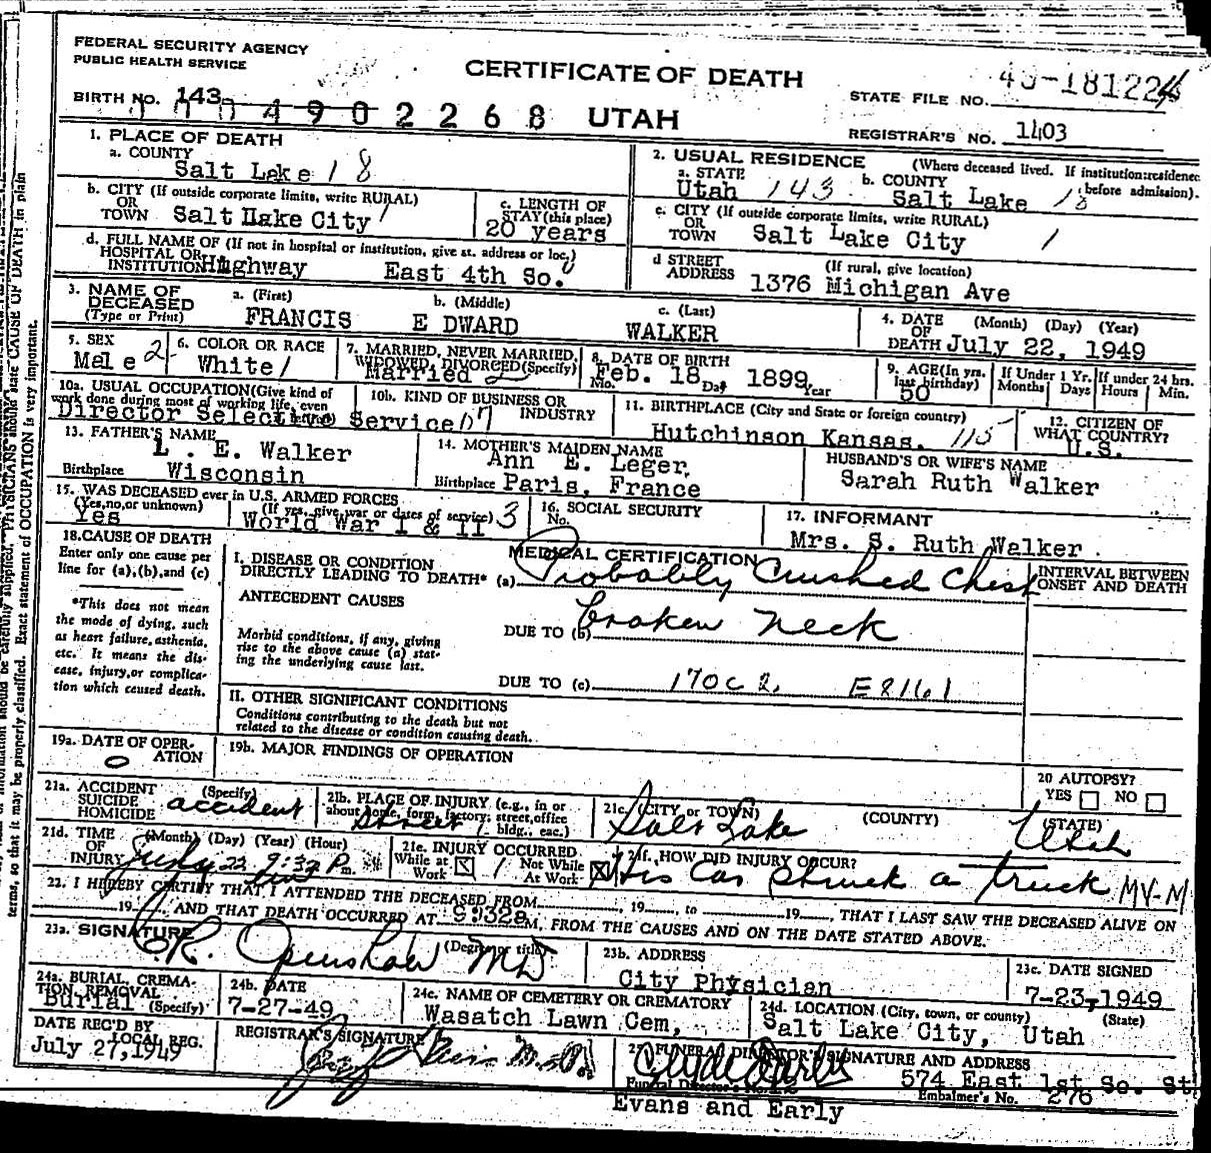 FEDERAL SECURITY AGENCY
PUBLIC HEALTH SERVICE
CERTIFICATE OF DEATH
UTAH
BIRTH NO. 143
0 4 9 0 2 2 6 8
STATE FILE NO.
REGISTRAR'S NO. 1403
1. PLACE OF DEATH
a. COUNTY
Salt Lake 18
b. CITY (If outside corporate limits, write RURAL)
OR
TOWN Salt Lake City 1
c. LENGTH OF
STAY (this place)
20 years
d. FULL NAME OF (If not in hospital or institution, give st. address or loc.)
HOSPITAL OR
INSTITUTION Highway East 4th So.
2. USUAL RESIDENCE (Where deceased lived. If institution: residence
before admission).
a. STATE
Utah 143
b. COUNTY
Salt Lake 18
c. CITY (If outside corporate limits, write RURAL)
OR
TOWN Salt Lake City 1
d STREET
ADDRESS
(If rural, give location)
1376 Michigan Ave
3. NAME OF
DECEASED
(Type or Print)
a. (First)
FRANCIS
b. (Middle)
E DWARD
c. (Last)
WALKER
4. DATE (Month) (Day) (Year)
OF
DEATH July 22, 1949
5. SEX
Male 2
6. COLOR OR RACE
White 1
7. MARRIED, NEVER MARRIED,
WIDOWED, DIVORCED (Specify)
Married 2
8. DATE OF BIRTH
Feb. 18 1899
Mo. Day Year
9. AGE (In yrs.
last birthday)
50
If Under 1 Yr.
Months Days
If under 24 hrs.
Hours Min.
10a. USUAL OCCUPATION (Give kind of
work done during most of working life, even
Director Selective Service
10b. KIND OF BUSINESS OR
INDUSTRY
11. BIRTHPLACE (City and State or foreign country)
Hutchinson Kansas. 115
12. CITIZEN OF
WHAT COUNTRY?
U.S.
13. FATHER'S NAME
L . E. Walker
Birthplace Wisconsin
14. MOTHER'S MAIDEN NAME
Ann E. Leger
Birthplace Paris, France
HUSBAND'S OR WIFE'S NAME
Sarah Ruth Walker
15. WAS DECEASED ever in U.S. ARMED FORCES
(Yes, no, or unknown) (If yes, give war or dates of service)
Yes World War I & II 3
16. SOCIAL SECURITY
No.
17. INFORMANT
Mrs. S. Ruth Walker .
18. CAUSE OF DEATH
Enter only one cause per
line for (a), (b), and (c)
*This does not mean
the mode of dying, such
as heart failure, asthenia,
etc. It means the dis-
ease, injury, or complica-
tion which caused death.
MEDICAL CERTIFICATION
I. DISEASE OR CONDITION
DIRECTLY LEADING TO DEATH* (a) Probably Crushed Chest
INTERVAL BETWEEN
ONSET AND DEATH
ANTECEDENT CAUSES
Morbid conditions, if any, giving
rise to the above cause (a) stat-
ing the underlying cause last.
DUE TO (b) broken neck
DUE TO (c)
II. OTHER SIGNIFICANT CONDITIONS
Conditions contributing to the death but not
related to the disease or condition causing death.
19a. DATE OF OPER-
ATION
0
19b. MAJOR FINDINGS OF OPERATION
20 AUTOPSY?
YES NO
21a. ACCIDENT (Specify)
SUICIDE
HOMICIDE accident
21b. PLACE OF INJURY (e.g., in or
about home, farm, factory, street, office
bldg., eac.)
Street 1
21c. (CITY or TOWN) (COUNTY) (STATE)
Salt Lake Utah
21d. TIME (Month) (Day) (Year) (Hour)
OF
INJURY July 22 9:32 P m.
21e. INJURY OCCURRED
While at Work Not While At Work
21f. HOW DID INJURY OCCUR?
His Car Struck a truck MV-M
22. I HEREBY CERTIFY THAT I ATTENDED THE DECEASED FROM , 19 , to 19 , THAT I LAST SAW THE DECEASED ALIVE ON
19 , AND THAT DEATH OCCURRED AT 9:32a M, FROM THE CAUSES AND ON THE DATE STATED ABOVE.
23a. SIGNATURE (Degree or title)
Openshaw MD
23b. ADDRESS
City Physician
23c. DATE SIGNED
7-23-1949
24a. BURIAL, CREMA-
TION, REMOVAL
Burial (Specify)
24b. DATE
7-27-49
24c. NAME OF CEMETERY OR CREMATORY
Wasatch Lawn Cem,
24d. LOCATION (City, town, or county) (State)
Salt Lake City, Utah
DATE REC'D BY
LOCAL REG.
July 27, 1949
REGISTRAR'S SIGNATURE
FUNERAL DIRECTOR'S SIGNATURE AND ADDRESS
Clyde Early
574 East 1st So. St
Embalmer's No. 276
Evans and Early